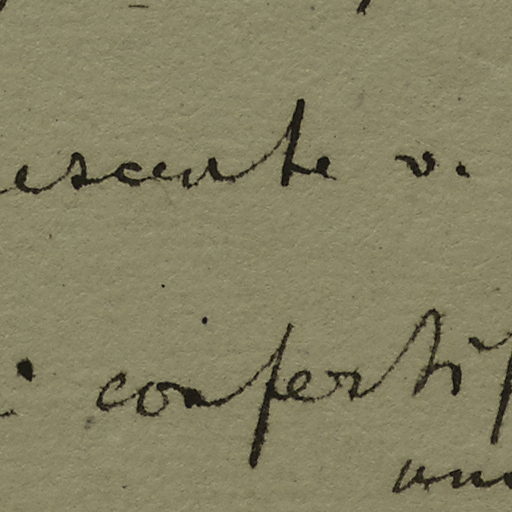 escente v.
confertif